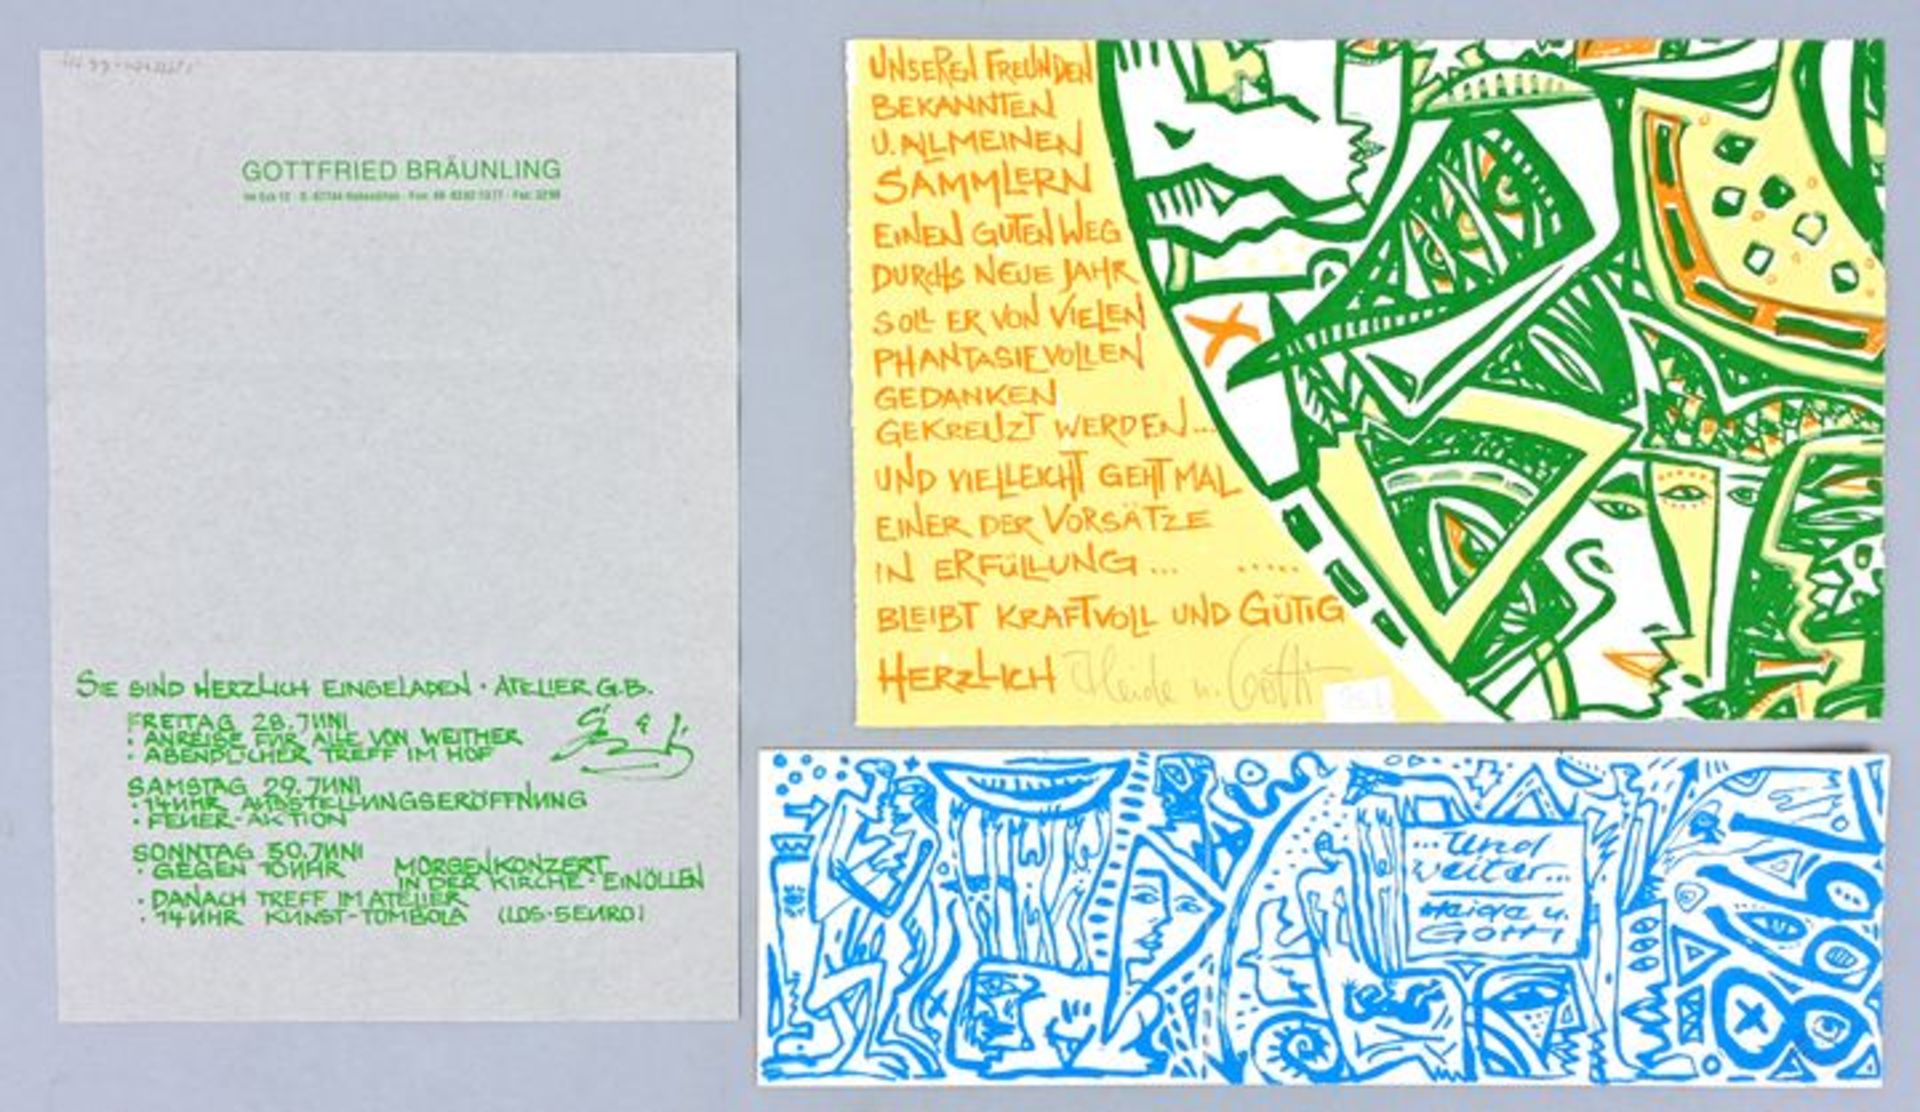 GOTTFRIED BRÄUNLING
SIE SIND HERZLICH EINGELADEN · ATELIER G.B.
FREITAG 28. JUNI
· ANREISE FÜR ALLE VON WEITHER
· ABENDLICHER TREFF IM HOF
SAMSTAG 29. JUNI
· 14 UHR AUSSTELLUNGSERÖFFNUNG
· FEUER-AKTION
SONNTAG 30. JUNI
· GEGEN 10 UHR MORGENKONZERT
IN DER KIRCHE · EINÖLLEN
· DANACH TREFF IM ATELIER
· 14 UHR KUNST-TOMBOLA (LOS · 5 EURO)
UNSEREN FREUNDEN
BEKANNTEN
U. ALL MEINEN
SAMMLERN
EINEN GUTEN WEG
DURCHS NEUE JAHR
SOLL ER VON VIELEN
PHANTASIEVOLLEN
GEDANKEN
GEKREUZT WERDEN...
UND VIELLEICHT GEHT MAL
EINER DER VORSÄTZE
IN ERFÜLLUNG... .....
BLEIBT KRAFTVOLL UND GÜTIG
HERZLICH Heide u. Götti
...Und
weiter...
Heide u.
Götti